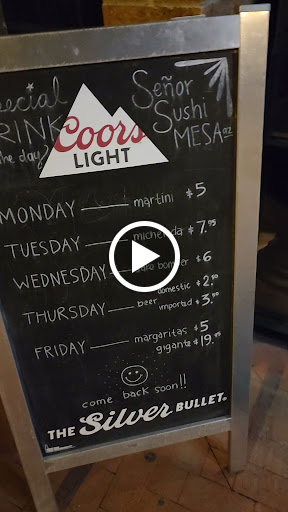 pecial
DRINK
the day
Señor
Sushi
MESA AZ
Coors
LIGHT
MONDAY martini $5
TUESDAY michelada $7.95
WEDNESDAY bomber $6
THURSDAY beer domestic $2.50
imported $3.50
FRIDAY margaritas $5
gigante $19.95
come back soon!!
THE Silver BULLET.